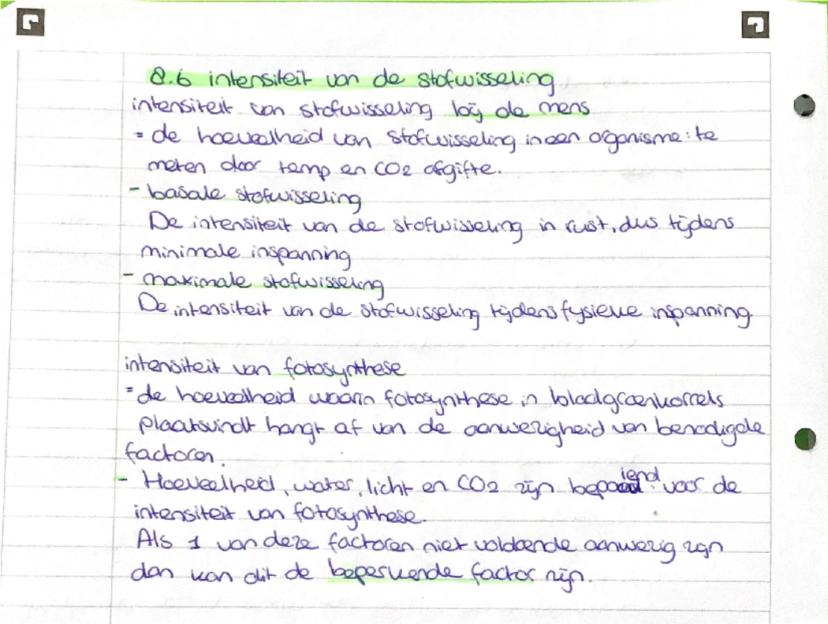 8.6 intensiteit van de stofwisseling
intensiteit van stofwisseling bij de mens
= de hoeveelheid van stofwisseling in een organisme: te
meten door temp en CO2 afgifte.
- basale stofwisseling
De intensiteit van de stofwisseling in rust, dus tijdens
minimale inspanning
- maximale stofwisseling
De intensiteit van de stofwisseling tijdens fysieke inspanning.
intensiteit van fotosynthese
= de hoeveelheid waarin fotosynthese in bladgroenkorrels
plaatsvindt hangt af van de aanwezigheid van benodigde
factoren.
- Hoeveelheid, water, licht en CO2 zijn bepalend voor de
intensiteit van fotosynthese.
Als 1 van deze factoren niet voldoende aanwezig zijn
dan kan dit de beperkende factor zijn.